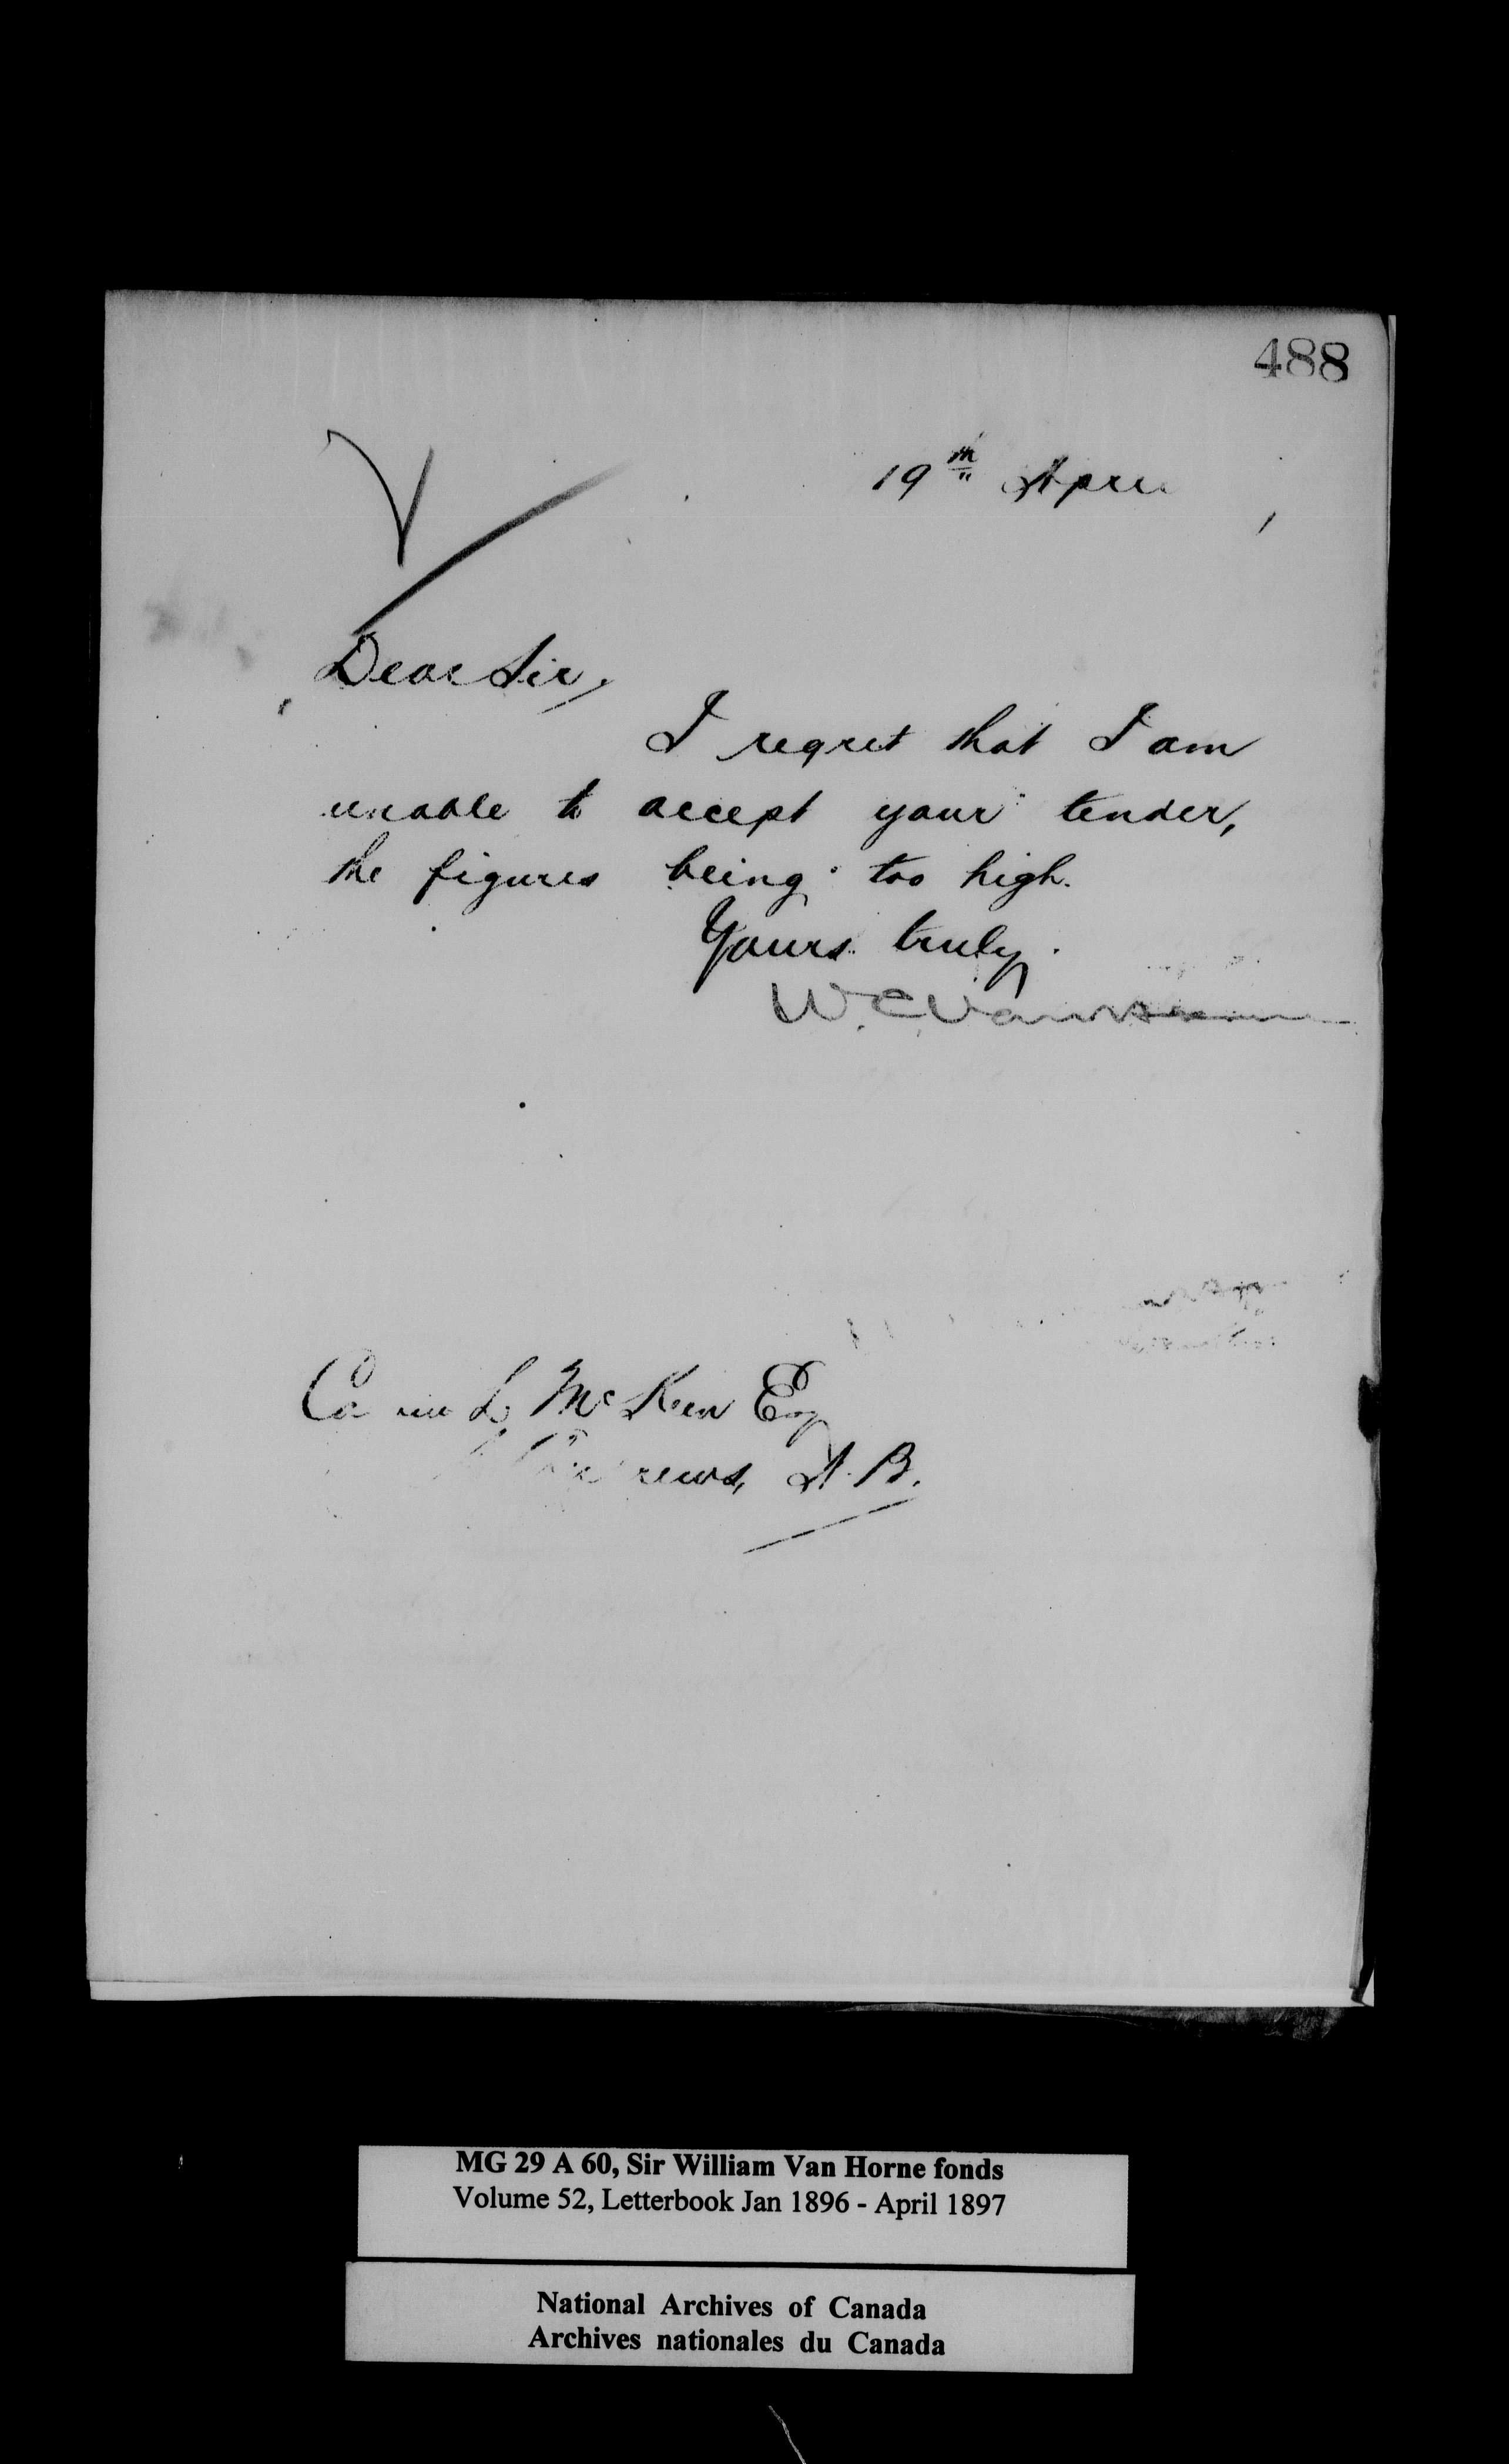 488
19th April
Dear Sir,
I regret that I am
unable to accept your tender,
the figures being too high.
Yours truly.
W. C. Van Horne
L. McKen Esq
N. B.
MG 29 A 60, Sir William Van Horne fonds
Volume 52, Letterbook Jan 1896 - April 1897
National Archives of Canada
Archives nationales du Canada